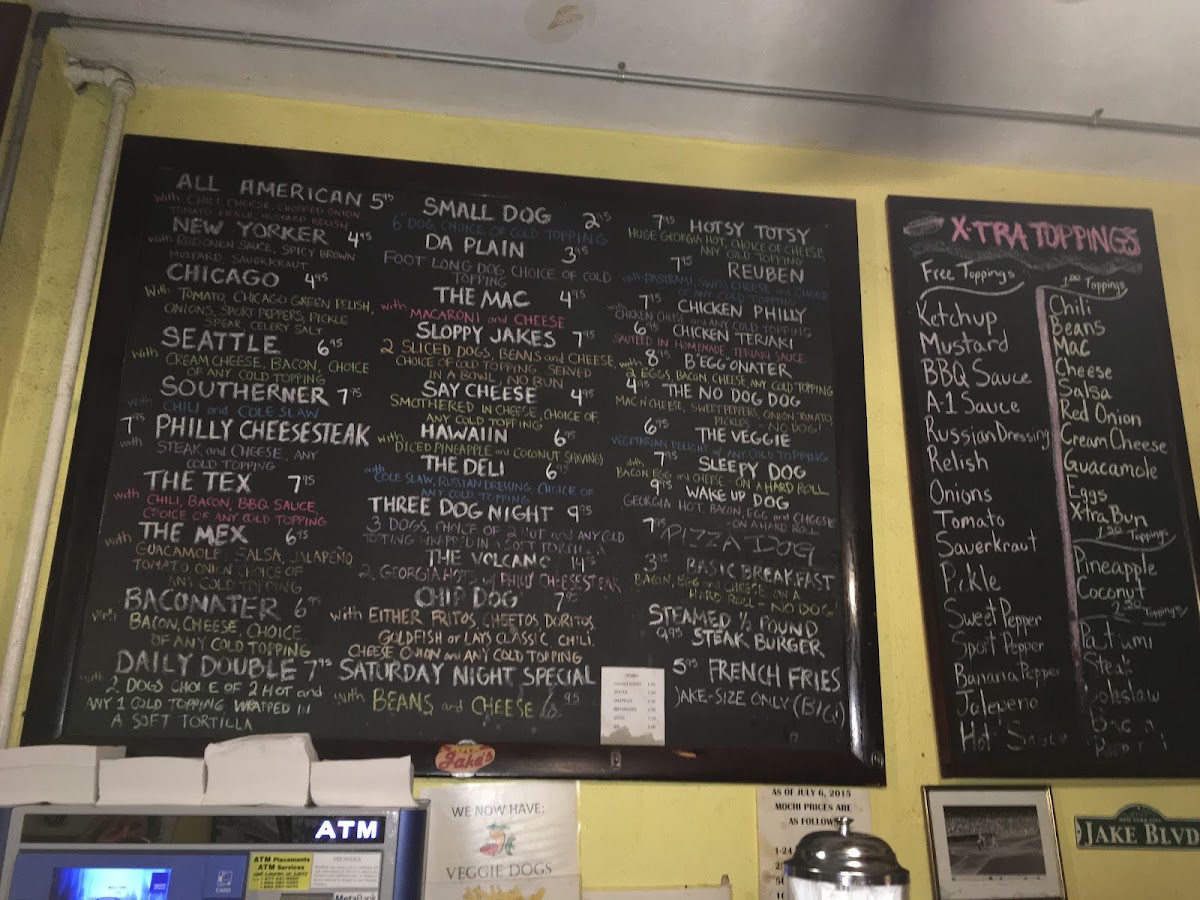 ALL AMERICAN 5 95
with CHILI CHEESE, CHOPPED ONION
TOMATO, PICKLE, MUSTARD RELISH
NEW YORKER 4 95
with RED ONION SAUCE, SPICY BROWN
MUSTARD, SAUERKRAUT
CHICAGO 4 95
With TOMATO, CHICAGO GREEN RELISH,
ONIONS, SPORT PEPPERS, PICKLE
SPEAR, CELERY SALT
SEATTLE 6 95
with CREAM CHEESE, BACON, CHOICE
OF ANY COLD TOPPING
SOUTHERNER 7 95
with CHILI and COLE SLAW
7 95 PHILLY CHEESESTEAK
with STEAK and CHEESE, ANY
COLD TOPPING
THE TEX 7 95
with CHILI, BACON, BBQ SAUCE,
CHOICE OF ANY COLD TOPPING
THE MEX 6 95
with GUACAMOLE, SALSA, JALAPEÑO
TOMATO ONION CHOICE OF
ANY COLD TOPPING
BACONATER 6 95
with BACON, CHEESE, CHOICE
OF ANY COLD TOPPING
DAILY DOUBLE 7 95
with 2 DOGS CHOICE OF 2 HOT and
ANY 1 COLD TOPPING WRAPPED IN
A SOFT TORTILLA
SMALL DOG 2 95
6" DOG, CHOICE OF COLD TOPPING
DA PLAIN 3 95
FOOT LONG DOG, CHOICE OF COLD
TOPPING
THE MAC 4 95
with MACARONI and CHEESE
SLOPPY JAKES 7 95
2 SLICED DOGS, BEANS and CHEESE,
CHOICE OF COLD TOPPING. SERVED
IN A BOWL, NO BUN
SAY CHEESE 4 95
SMOTHERED IN CHEESE, CHOICE OF
ANY COLD TOPPING
HAWAIIN 6 95
with DICED PINEAPPLE and COCONUT SHAVINGS
THE DELI 6 95
with COLE SLAW, RUSSIAN DRESSING, CHOICE OF
ANY COLD TOPPING
THREE DOG NIGHT 9 95
3 DOGS, CHOICE OF 2 HOT AND ANY COLD
TOPPING WRAPPED IN A SOFT TORTILLA
THE VOLCANO 14 95
2 GEORGIA HOTS w/ PHILLY CHEESESTEAK
CHIP DOG 7 95
with EITHER FRITOS, CHEETOS DORITOS,
GOLDFISH or LAYS CLASSIC CHILI,
CHEESE ONION and ANY COLD TOPPING
SATURDAY NIGHT SPECIAL
with BEANS and CHEESE 6 95
7 95 HOTSY TOTSY
HUGE GEORGIA HOT, CHOICE of CHEESE,
ANY COLD TOPPING
7 95 REUBEN
with PASTRAMI, SWISS CHEESE and CHOICE
OF ANY COLD TOPPING
7 95 CHICKEN PHILLY
with CHICKEN CHEESE and ANY COLD TOPPING
6 95 CHICKEN TERIAKI
SAUTEED IN HOMEMADE TERIAKI SAUCE
8 95 B'EGG'ONATER
with 2 EGGS, BACON, CHEESE, ANY COLD TOPPING
4 95 THE NO DOG DOG
MAC N CHEESE, SWEET PEPPERS, ONION, TOMATO,
PICKLES - NO DOG!
6 95 THE VEGGIE
VEGETARIAN DELIGHT w/ ANY COLD TOPPING
7 95 SLEEPY DOG
with BACON EGG and CHEESE - ON A HARD ROLL
9 95 WAKE UP DOG
GEORGIA HOT, BACON, EGG and CHEESE
- ON A HARD ROLL
7 95 PIZZA DOG
3 95 BASIC BREAKFAST
BACON, EGG and CHEESE ON A
HARD ROLL - NO DOG
STEAMED 1/2 POUND
9 95 STEAK BURGER
5 95 FRENCH FRIES
JAKE-SIZE ONLY (BIG!)
Jake's
X-TRA TOPPINGS
Free Toppings
Ketchup
Mustard
BBQ Sauce
A-1 Sauce
Russian Dressing
Relish
Onions
Tomato
Sauerkraut
Pickle
Sweet Pepper
Sport Pepper
Banana Pepper
Jalepeno
Hot Sauce
1.00 Toppings
Chili
Beans
Mac
Cheese
Salsa
Red Onion
Cream Cheese
Guacamole
Eggs
X-tra Bun
Toppings
Pineapple
Coconut
Toppings
Steak
Coleslaw
WE NOW HAVE:
VEGGIE DOGS
AS OF JULY 6, 2015
MOCHI PRICES ARE
AS FOLLOWS
1-24
ATM
ATM Placements
ATM Services
CARD
MetaBank
NEW YORK CITY
JAKE BLVD